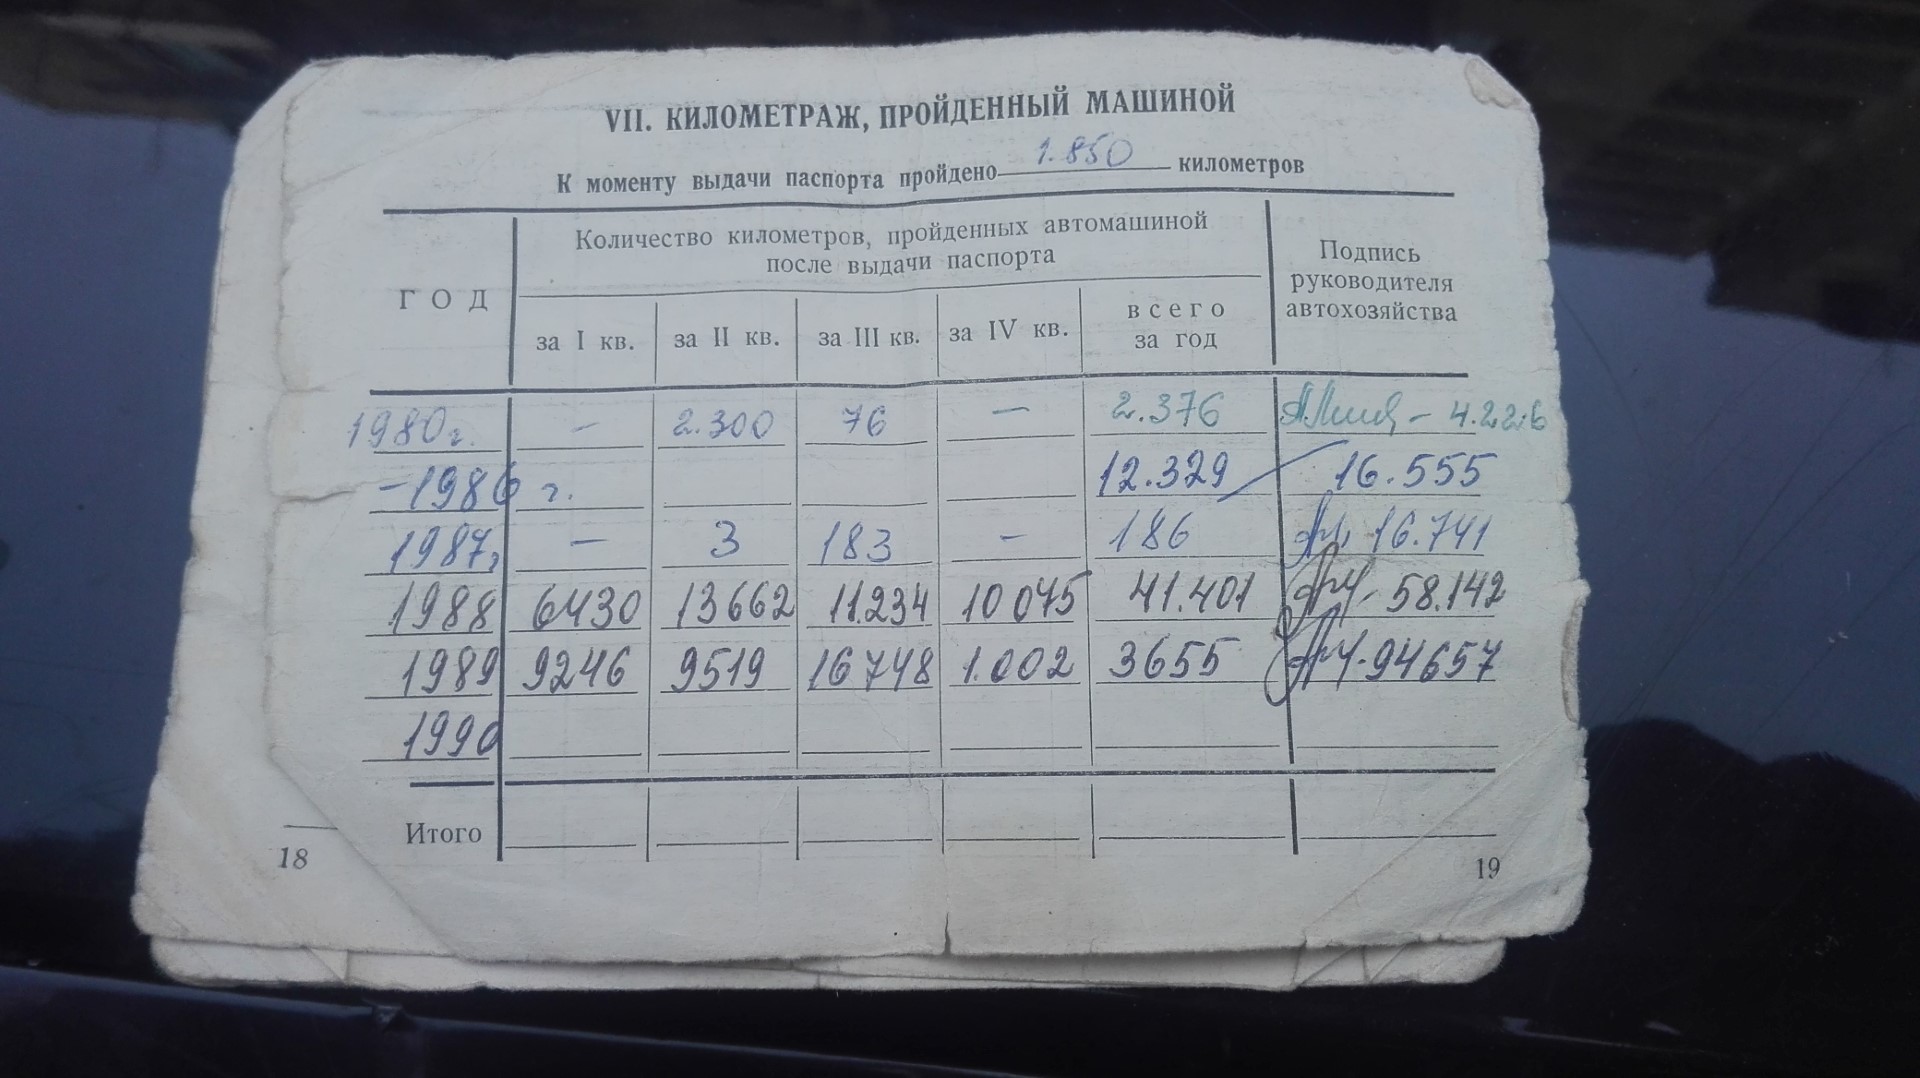 VII. КИЛОМЕТРАЖ, ПРОЙДЕННЫЙ МАШИНОЙ
К моменту выдачи паспорта пройдено 1.850 километров
ГОД
Количество километров, пройденных автомашиной
после выдачи паспорта
Подпись
руководителя
автохозяйства
за I кв. за II кв. за III кв. за IV кв. всего
за год
1980г. - 2.300 76 - 2.376 - 4.226
-1986 г. 12.329 16.555
1987г - 3 183 - 186 16.741
1988 6430 13662 11.234 10075 41.401 58.142
1989 9246 9519 16748 1.002 3655 94657
1990
Итого
18
19